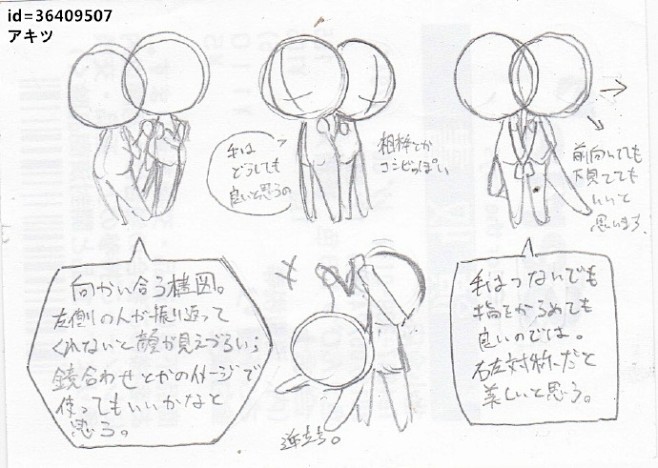 id=36409507
アキツ
手は
どうしても
良いと思うの
相棒とか
コンビっぽい
前向いてても
下見てても
いいと
思います
向かい合う構図。
左側の人が振り返って
くれないと顔が見えづらい;
鏡合わせとかのイメージで
使ってもいいかなと
思う。
逆立ち。
手はつないでも
指をからめても
良いのでは。
右左対称だと
美しいと思う。